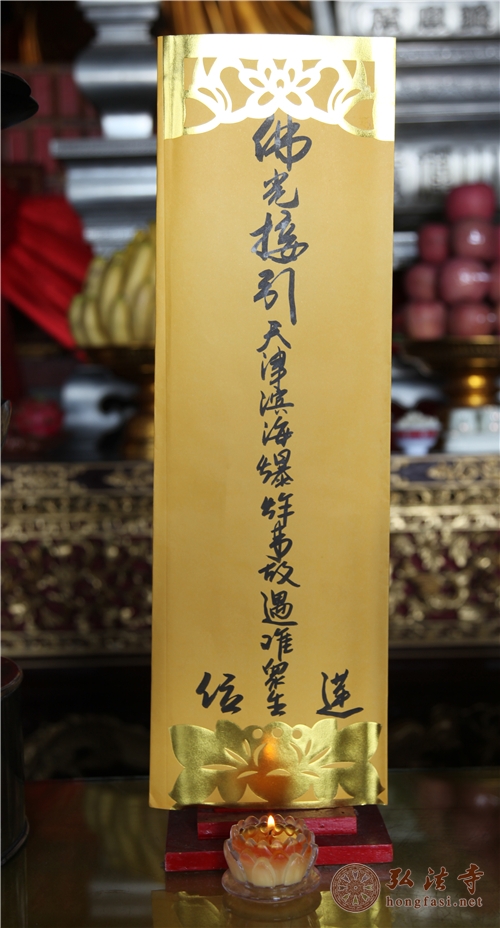 佛光接引天津滨海爆炸事故遇难众生
莲位
弘法寺
hongfasi.net